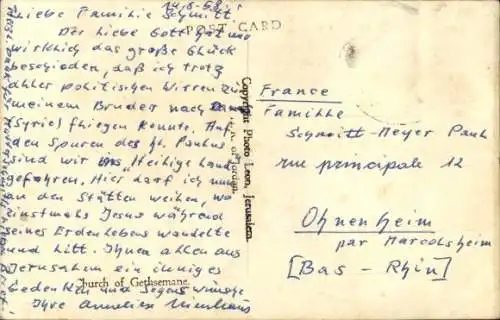 14.6.58
Liebe Familie Schmitt,
POST CARD
Der liebe Gott hat mir
wirklich das große Glück
beschieden, daß ich trotz
aller politischen Wirren zu
meinem Bruder nach
(Syrie) fliegen konnte. Auf
den Spuren des hl. Paulus
sind wir ins "Heilige Land"
gefahren. Hier darf ich nun
an den Stätten weilen, wo
einstmals Jesus während
seines Erdenlebens wandelte
und litt. Ihnen allen aus
Jerusalem ein inniges
Gedenken und Segenswünsche
Ihre Anneliese Nienhaus
Church of Gethsemane.
Copyright Photo Leon, Jerusalem.
H.K. of Jordan.
France
Famille
Schmitt-Meyer Paul
rue principale 12
Ohnenheim
par Marcolsheim
[Bas - Rhin]